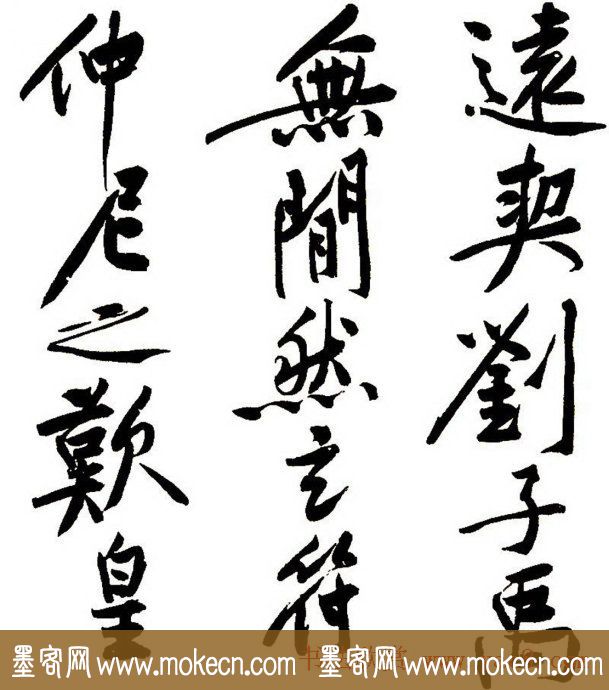 遠契劉子禹
無閒然玄符
仲尼之歎皇
墨客网 www.mokecn.com 墨客网 www.mokecn.com